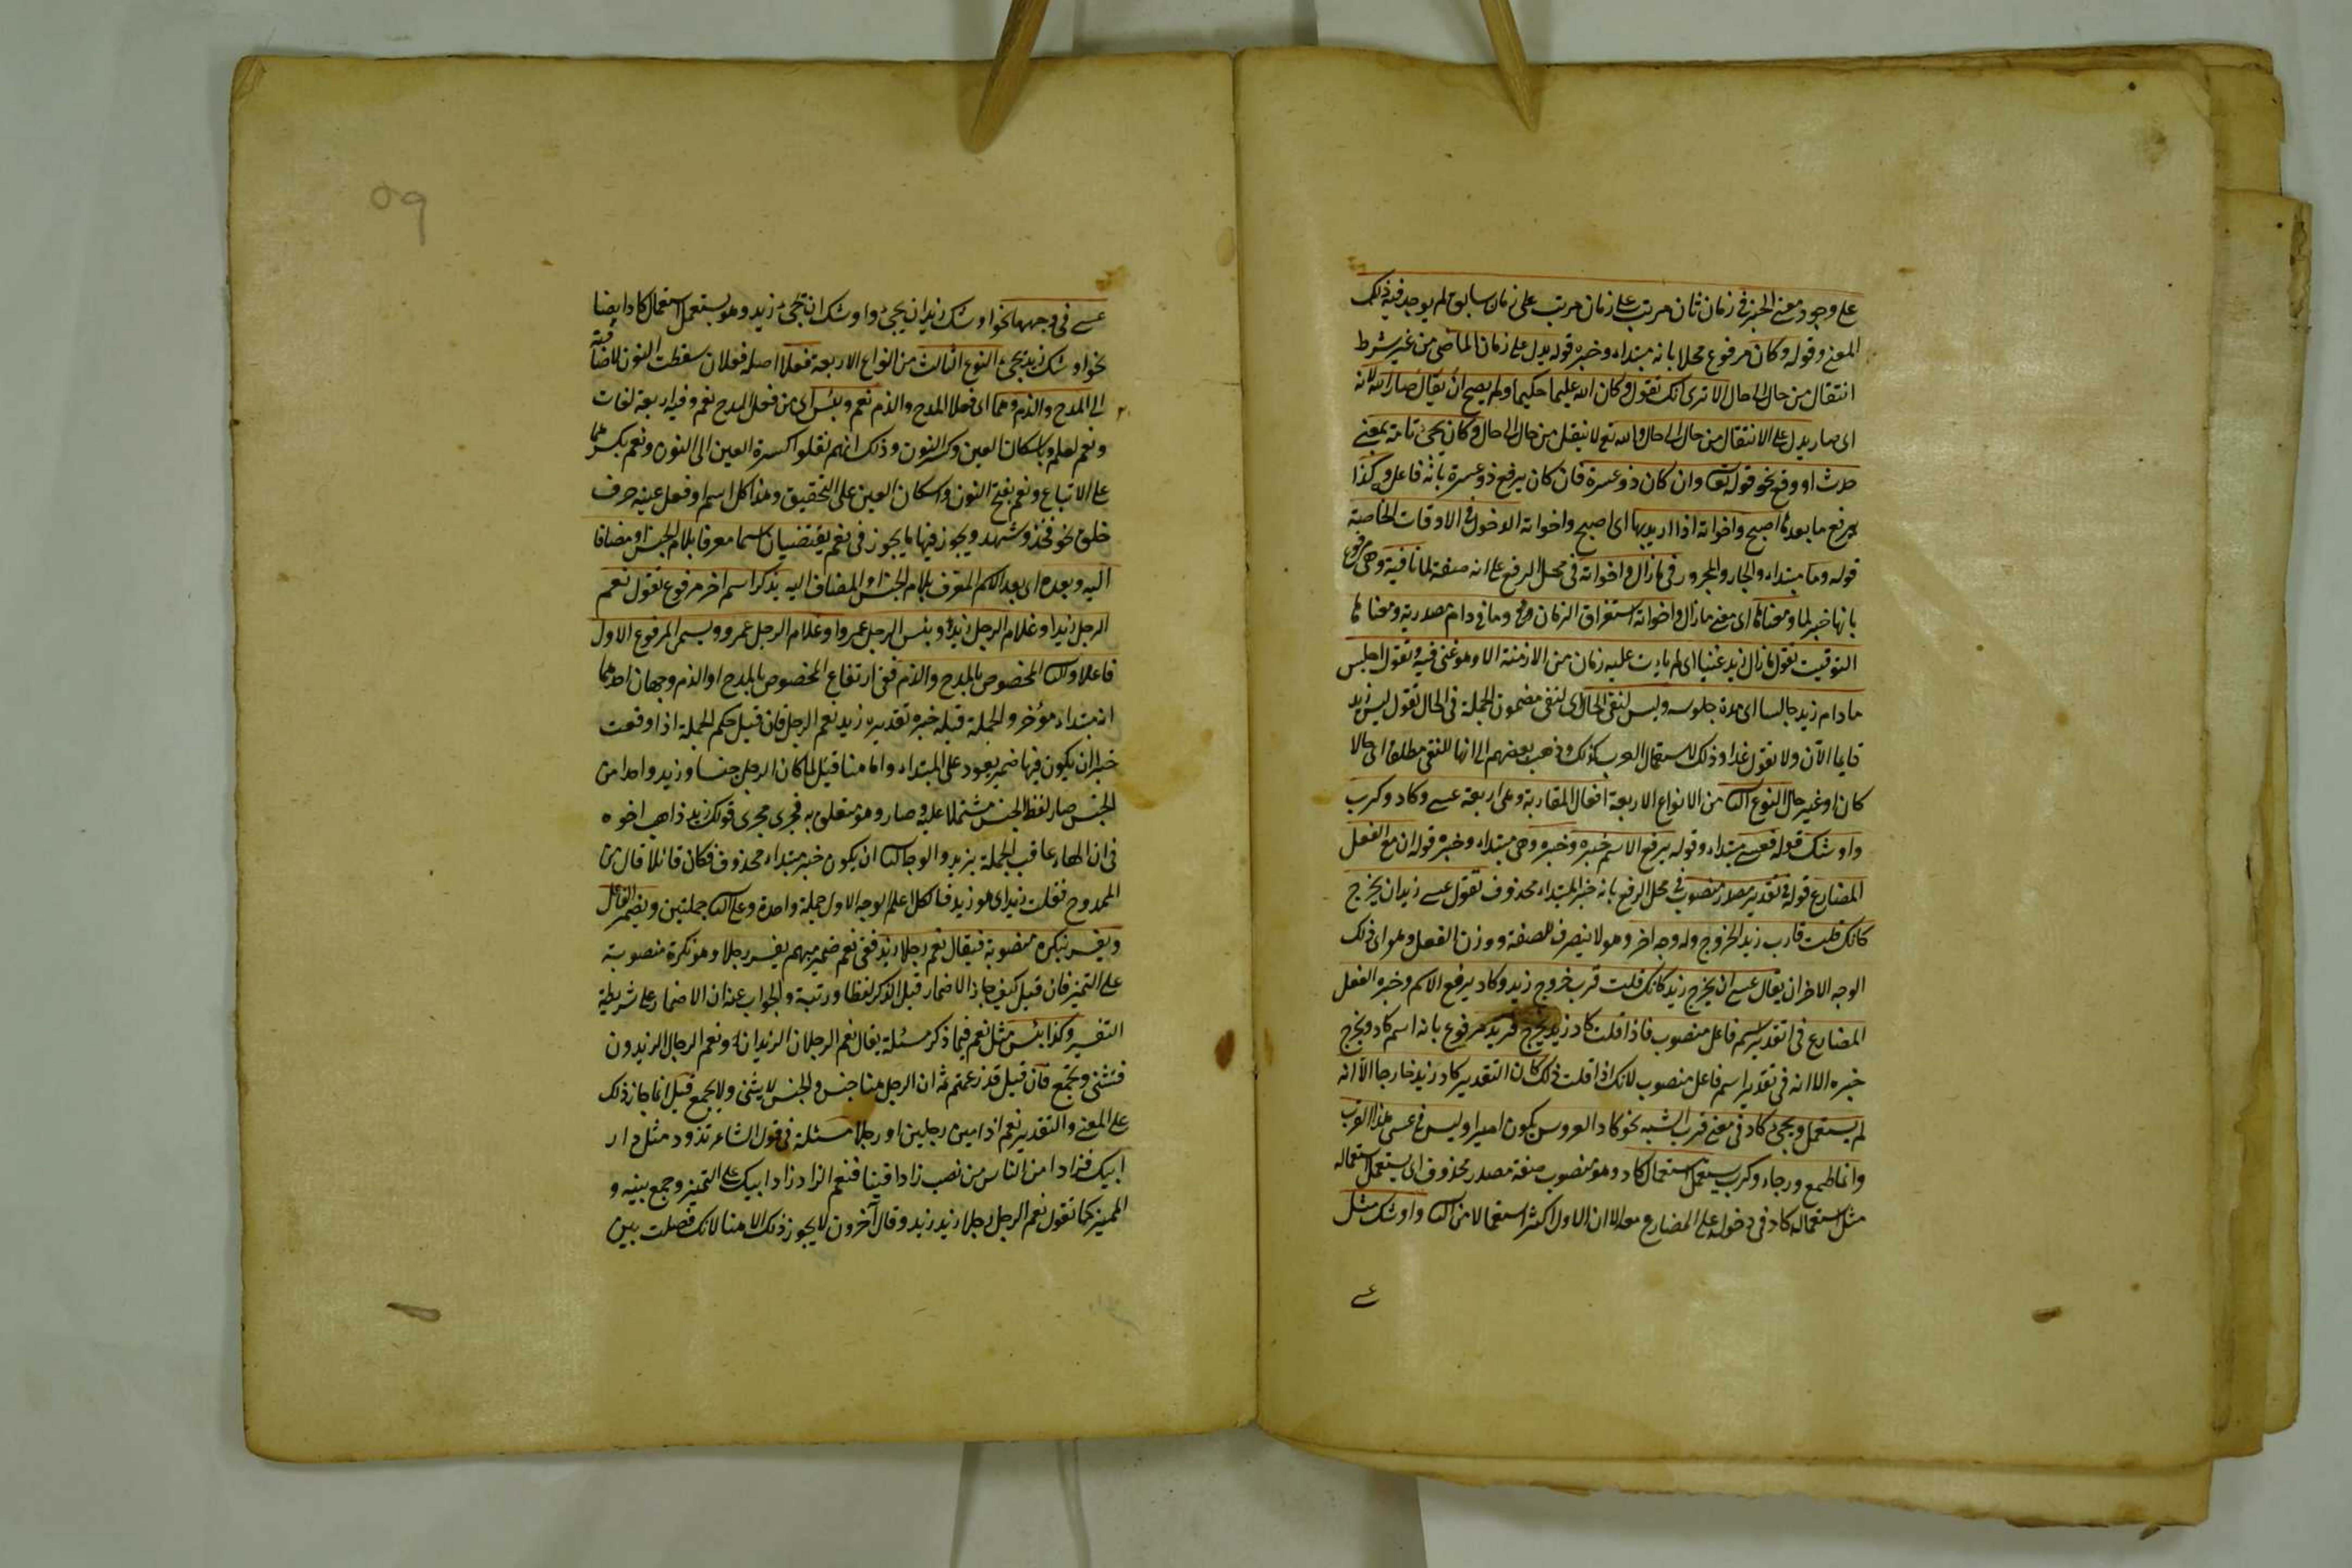 على وجود معنى الخبر في زمان ثان مرتب على زمان مرتب على زمان سابق لم يوجد فيه ذلك
المعنى وقوله وكان مرفوع محلا بانه مبتداء وخبره قوله يدل على زمان الماضي من غير شرط
انتقال من حال الى حال الا ترى انك تقول وكان الله عليما حكيما ولم يصح ان يقال صار الله لانه
اى صار يدل على الانتقال من حال الى حال والله تع لا ينتقل من حال الى حال وكان يجئ تامة بمعنى
حدث او وقع نحو قوله تعا وان كان ذو عسرة فان كان يرفع ذو عسرة بانه فاعل وكذا
يرفع ما بعدها اصبح واخواته اذا اريد بها اى اصبح واخواته الدخول في الاوقات الخاصة
قوله وما مبتداء والجار والمجرور في مازال واخواته في محل الرفع على انه صفة لما نافية وهي مرفوع
بانها خبر لما ومعناها اى معنى مازال واخواته استغراق الزمان وما في دام مصدرية ومعناها
التوقيت تقول مازال زيد غنيا اى لم يات عليه زمان من الازمنة الا وهو غنى فيه وتقول اجلس
مادام زيد جالسا اى مدة جلوسه وليس لنفى الحال اى لنفى مضمون الجملة في الحال تقول ليس زيد
قايما الآن ولا تقول غدا وذلك لاستعمال العرب كذلك وذهب بعضهم الى انها للنفى مطلقا اى حالا
كان او غير حال النوع الثا من الانواع الاربعة افعال المقاربة وهى اربعة عسى وكاد وكرب
واوشك قوله فعسى مبتداء وقوله يرفع الاسم خبره وخبره وهى مبتداء وخبره قوله ان مع الفعل
المضارع قوله في تقدير مصدر منصوب في محل الرفع بانه خبر المبتداء محذوف تقول عسى زيد ان يخرج
كانك قلت قارب زيد الخروج وله وجه اخر وهو لا يتصرف للصفة ووزن الفعل وهو اى ذلك
الوجه الاخر ان يقال عسى ان يخرج زيد كانك قلت قرب خروج زيد وكاد يرفع الاسم وخبره الفعل
المضارع في تقدير اسم فاعل منصوب فاذا قلت كاد زيد يخرج فزيد مرفوع بانه اسم كاد ويخرج
خبره الا انه في تقدير اسم فاعل منصوب لانك اذا قلت ذلك كان التقدير كاد زيد خارجا الا انه
لم يستعمل ويجئ كاد في معنى قرب الشبه نحو كاد العروس يكون اميرا وليس في عسى هذا القرب
وانما طمع ورجاء وكرب يستعمل استعمال كاد وهو منصوب صفة مصدر محذوف اى يستعمل استعماله
مثل استعماله كاد في دخوله على المضارع معه الا ان الاول اكثر استعمالا من الثا واوشك مثل
عسى
٥٩
عسى في وجهها نحو اوشك زيد ان يجئ واوشك ان يجئ زيد وهو يستعمل استعمال كاد ايضا
نحو اوشك زيد يجئ النوع الثالث من انواع الاربعة فعلا اصله فعلان سقطت النون لاضافته
الى المدح والذم وهما اى فعلا المدح والذم نعم وبئس اى من فعل المدح نعم وفيه اربعة لغات
ونعم لعلم وباسكان العين وكسر النون وذلك انهم نقلوا كسرة العين الى النون ونعم بكسرهما
على الاتباع ونعم بفتح النون واسكان العين على التحقيق وهذا كل اسم او فعل عينه حرف
حلق نحو فخذ وشهد ويجوز فيها ما يجوز في نعم يقتضيان اسما معرفا بلام الجنس او مضافا
اليه وبعده اى بعد الاسم المعرف بلام الجنس او المضاف اليه يذكر اسم اخر مرفوع تقول نعم
الرجل زيد او غلام الرجل زيد وبئس الرجل عمرو او غلام الرجل عمرو ويسمى المرفوع الاول
فاعلا والثا المخصوص بالمدح والذم ففى ارتفاع المخصوص بالمدح او الذم وجهان احدهما
انه مبتداء مؤخر والجملة قبله خبره تقديره زيد نعم الرجل فان قيل حكم الجملة اذا وقعت
خبرا ان يكون فيها ضمير يعود على المبتداء واما هنا قيل لما كان الرجل جنسا وزيد واحد من
الجنس صار لفظ الجنس مشتملا عليه وصار وهو متعلق به فجرى مجرى قولك زيد ذاهب اخوه
في ان الهاء عاقب الجملة بزيد والوجه الثا ان يكون خبر مبتداء محذوف فكان قائلا قال من
الممدوح فقلت زيد اى هو زيد فالكل على الوجه الاول جملة واحدة وعلى الثا جملتين ويضمر الفاعل
ويفسر بنكرة منصوبة فيقال نعم رجلا زيد ففى نعم ضمير مبهم يفسر رجلا وهو نكرة منصوبة
على التميز فان قيل كيف جاز الاضمار قبل الذكر لفظا ورتبة والجواب عنه ان الاضمار على شريطة
التفسير وكذا بئس مثل نعم فيما ذكر مسئلة يقال نعم الرجلان الزيدان ونعم الرجال الزيدون
فتثنى وتجمع فان قيل قد زعمتم ان الرجل هنا جنس والجنس لا يثنى ولا يجمع قيل انما جاز ذلك
على المعنى والتقدير نعم اذا ميز رجلين او رجلا مسئلة في قول الشاعر تزود مثل زاد
ابيك فزادا من الناس من نصب زادا قينا فنعم الزاد زادا ابيك على التميز وجمع بينه و
المميز كما تقول نعم الرجل رجلا زيد زيد وقال آخرون لا يجوز ذلك الا هنا لانك فصلت بين